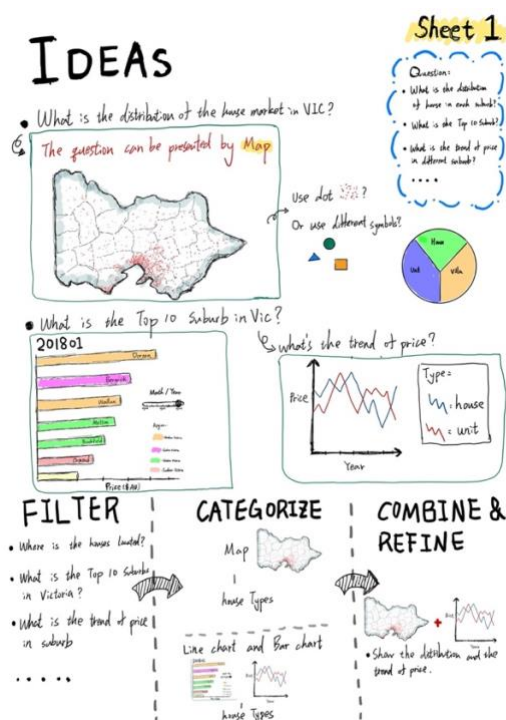 IDEAS
Sheet 1
Question:
• What is the distribution
of house in each suburb?
• What is the Top 10 Suburb?
• What is the trend of price
in different suburb?
....
• What is the distribution of the house market in VIC?
The question can be presented by Map
Use dot ?
Or use different symbols?
House
Unit
Villa
• What is the Top 10 Suburb in Vic?
201801
Month / Year
Region
Price ($AU)
What's the trend of price?
Price
Year
Type:
: house
: unit
FILTER
• Where is the houses located?
• What is the Top 10 Suburbs
in Victoria?
• What is the trend of price
in suburb
.....
CATEGORIZE
Map
house Types
Line chart and Bar chart
house Types
COMBINE &
REFINE
• Show the distribution and the
trend of price.